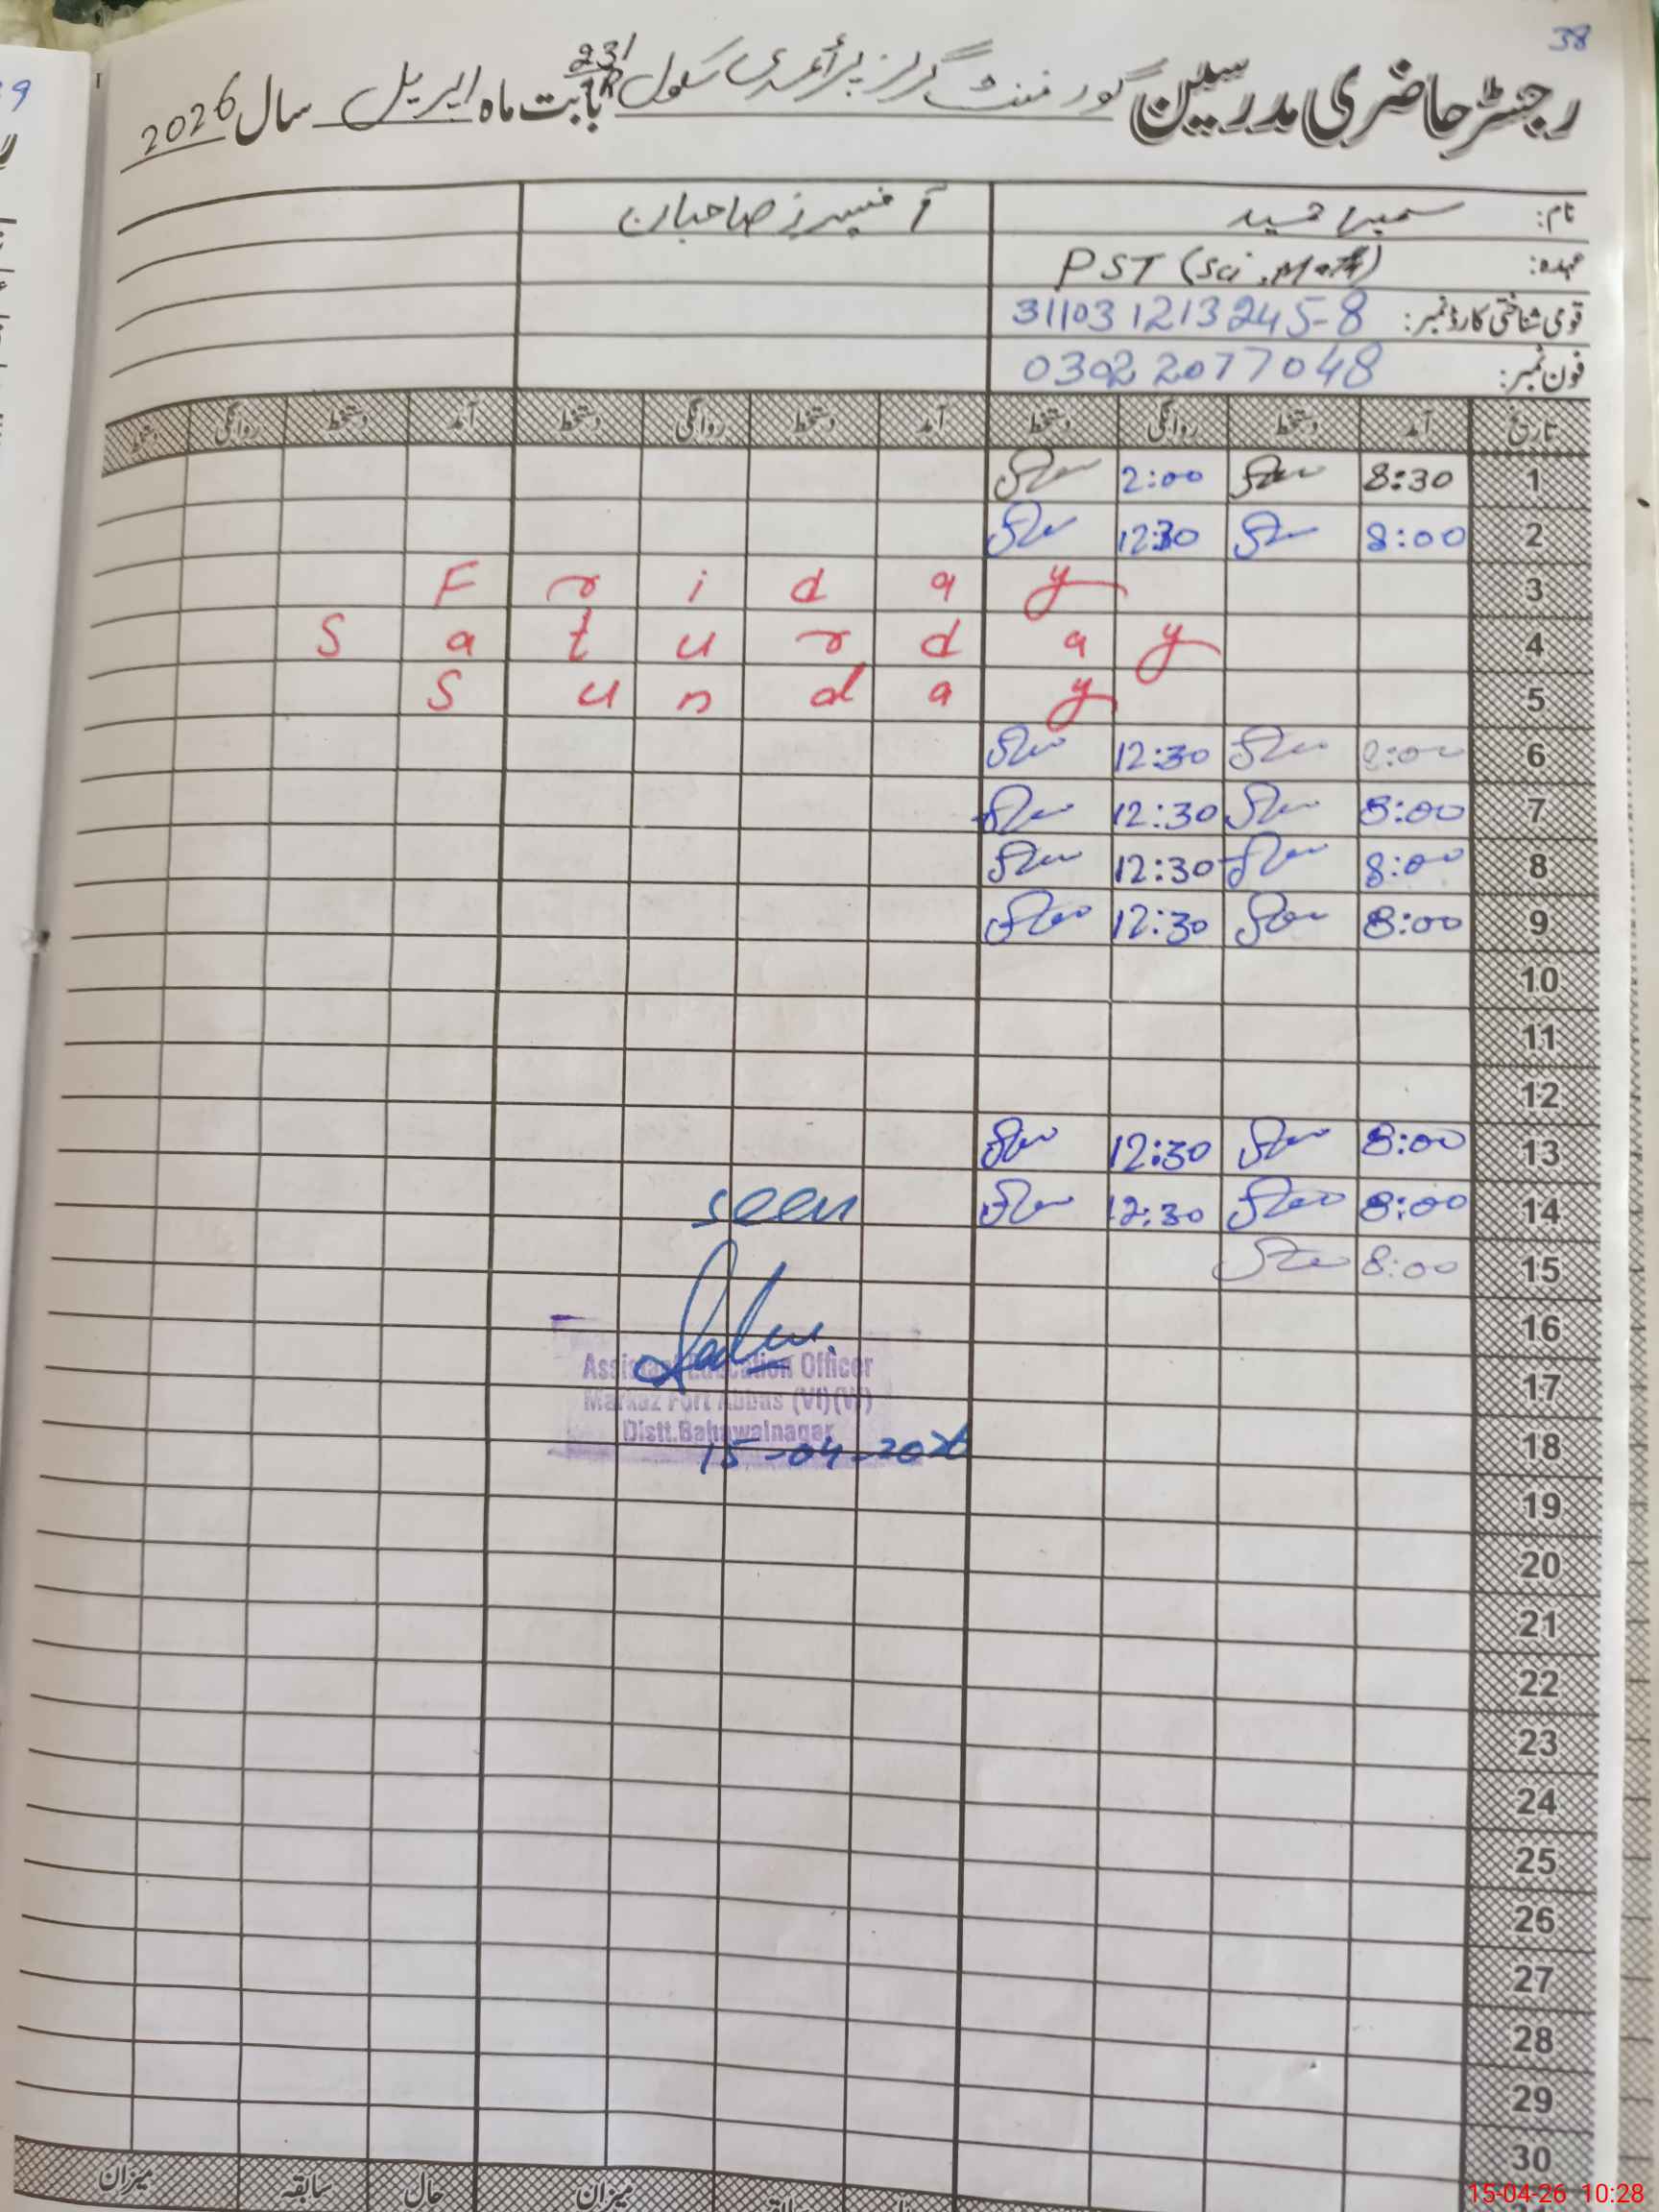 38
رجسٹر حاضری مدرسین گورنمنٹ گرلز پرائمری سکول 231/R بابت ماہ اپریل سال 2026
نام: سمیرا حمید آفیسرز صاحبان
عہدہ: PST (Sci, Math)
قومی شناختی کارڈ نمبر: 31103 1213245-8
فون نمبر: 0302 2077048
تاریخ آمد دستخط روانگی دستخط آمد دستخط روانگی دستخط آمد دستخط روانگی دستخط
1 8:30 2:00
2 8:00 12:30
3 Friday
4 Saturday
5 Sunday
6 8:00 12:30
7 8:00 12:30
8 8:00 12:30
9 8:00 12:30
10
11
12
13 8:00 12:30
14 8:00 12:30 seen
15 8:00
16
Assistant Education Officer
17
Markaz Fort Abbas (VI)(W)
Distt.Bahawalnagar
18 15-04-2026
19
20
21
22
23
24
25
26
27
28
29
30
میزان حال سابقہ میزان
15-04-26 10:28